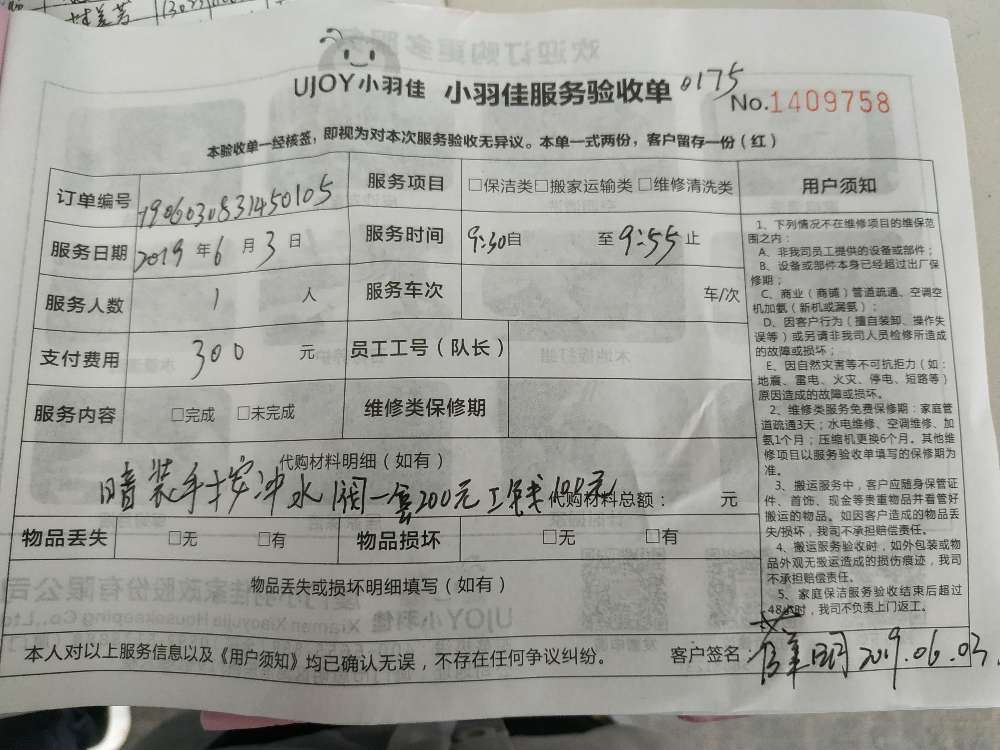 UJOY小羽佳 小羽佳服务验收单 0175
No.1409758
本验收单一经核签，即视为对本次服务验收无异议。本单一式两份，客户留存一份（红）
订单编号 1906030831450105 服务项目 □保洁类□搬家运输类□维修清洗类
服务日期 2019年6月3日 服务时间 9:30自 至9:55止
服务人数 1 人 服务车次 车/次
支付费用 300 元 员工工号（队长）
服务内容 □完成 □未完成 维修类保修期
代购材料明细（如有）
暗装手按冲水阀一套200元工钱100元 代购材料总额： 元
物品丢失 □无 □有 物品损坏 □无 □有
物品丢失或损坏明细填写（如有）
用户须知
1、下列情况不在维修项目的维保范
围之内：
A、非我司员工提供的设备或部件；
B、设备或部件本身已经超过出厂保
修期；
C、商业（商铺）管道疏通、空调空
机加氨（新机或漏氨）；
D、因客户行为（擅自装卸、操作失
误等）或另请非我司人员检修所造成
的故障或损坏；
E、因自然灾害等不可抗拒力（如：
地震、雷电、火灾、停电、短路等）
原因造成的故障或损坏。
2、维修类服务免费保修期：家庭管
道疏通3天；水电维修、空调维修、加
氨1个月；压缩机更换6个月。其他维
修项目以服务验收单填写的保修期为
准。
3、搬运服务中，客户应随身保管证
件、首饰、现金等贵重物品并看管好
搬运的物品。如因客户造成的物品丢
失/损坏，我司不承担赔偿责任。
4、搬运服务验收时，如外包装或物
品外观无搬运造成的损伤痕迹，我司
不承担赔偿责任。
5、家庭保洁服务验收结束后超过
48小时，我司不负责上门返工。
本人对以上服务信息以及《用户须知》均已确认无误，不存在任何争议纠纷。 客户签名： 2019.06.03.